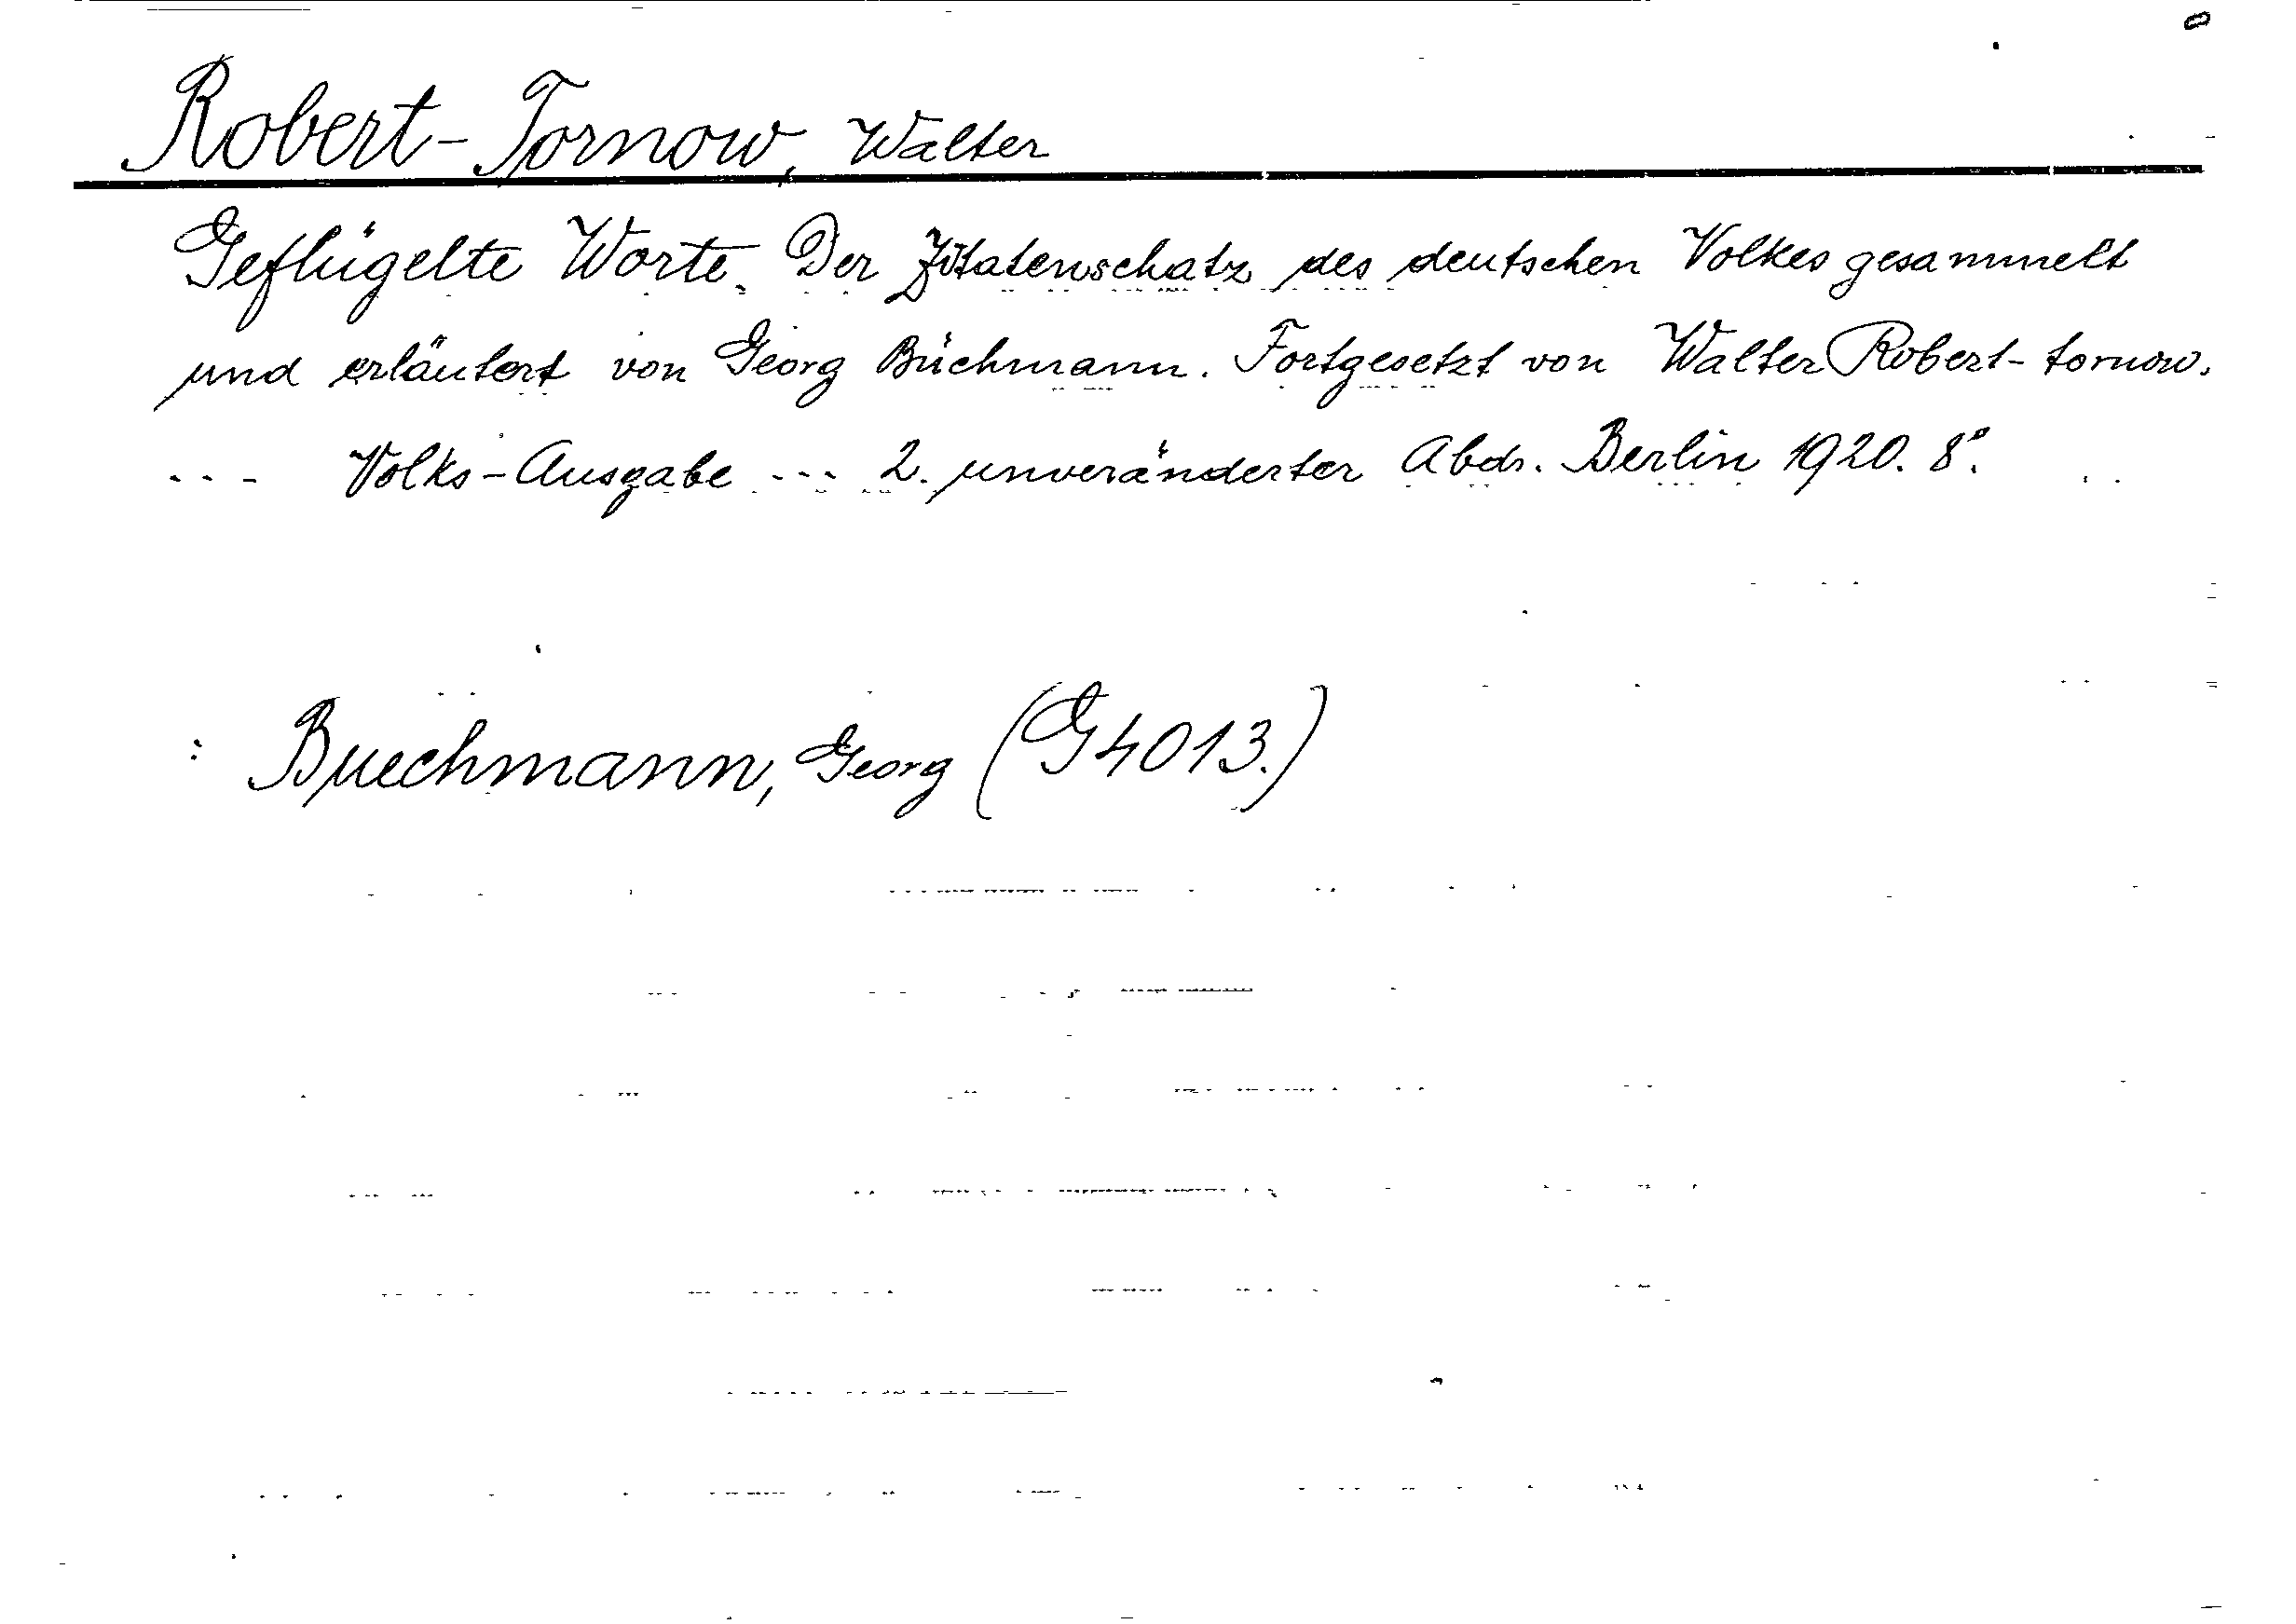 Robert-Tornow, Walter
Geflügelte Worte. Der Zitatenschatz des deutschen Volkes gesammelt
und erläutert von Georg Büchmann. Fortgesetzt von Walter Robert-tornow.
--- Volks-Ausgabe --- 2. unveränderter Abdr. Berlin 1920. 8°.
: Buechmann, Georg (G4013.)